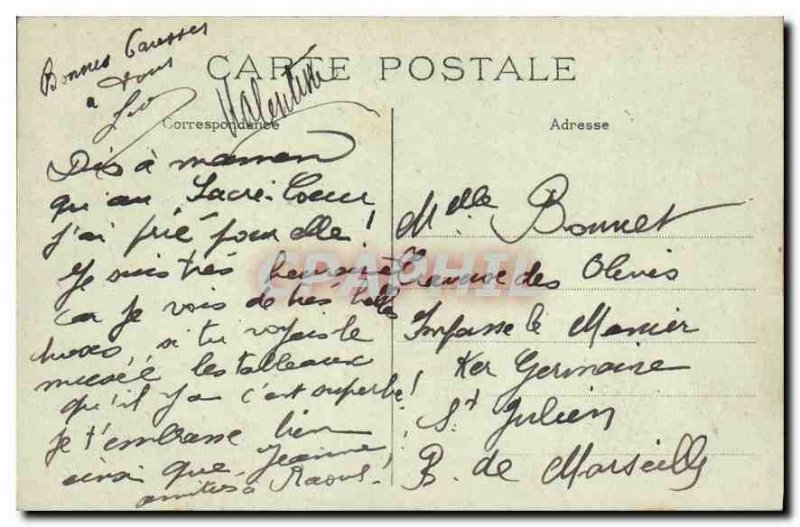 Bonnes Caresses
à tous
Valentine
CARTE POSTALE
Correspondance
Dis à maman
qu'au Sacré-Coeur
j'ai prié pour elle!
Je suis très heureuse
car je vois de très belles
choses, si tu voyais le
musée les tableaux
qu'il y a c'est superbe!
je t'embrasse bien
ainsi que Jeanne
amitiés à Raoul!
Adresse
Melle Bonnet
Traverse des Olives
Impasse le
Ker Germaine
St Julien
B. de Marseille
CPAPHIL